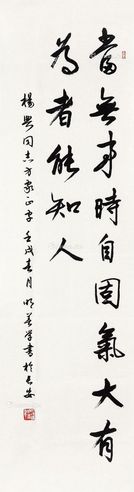 當無事時自固氣大有
為者能知人
楊興同志方家正字 壬戌春月 明善學書於長安